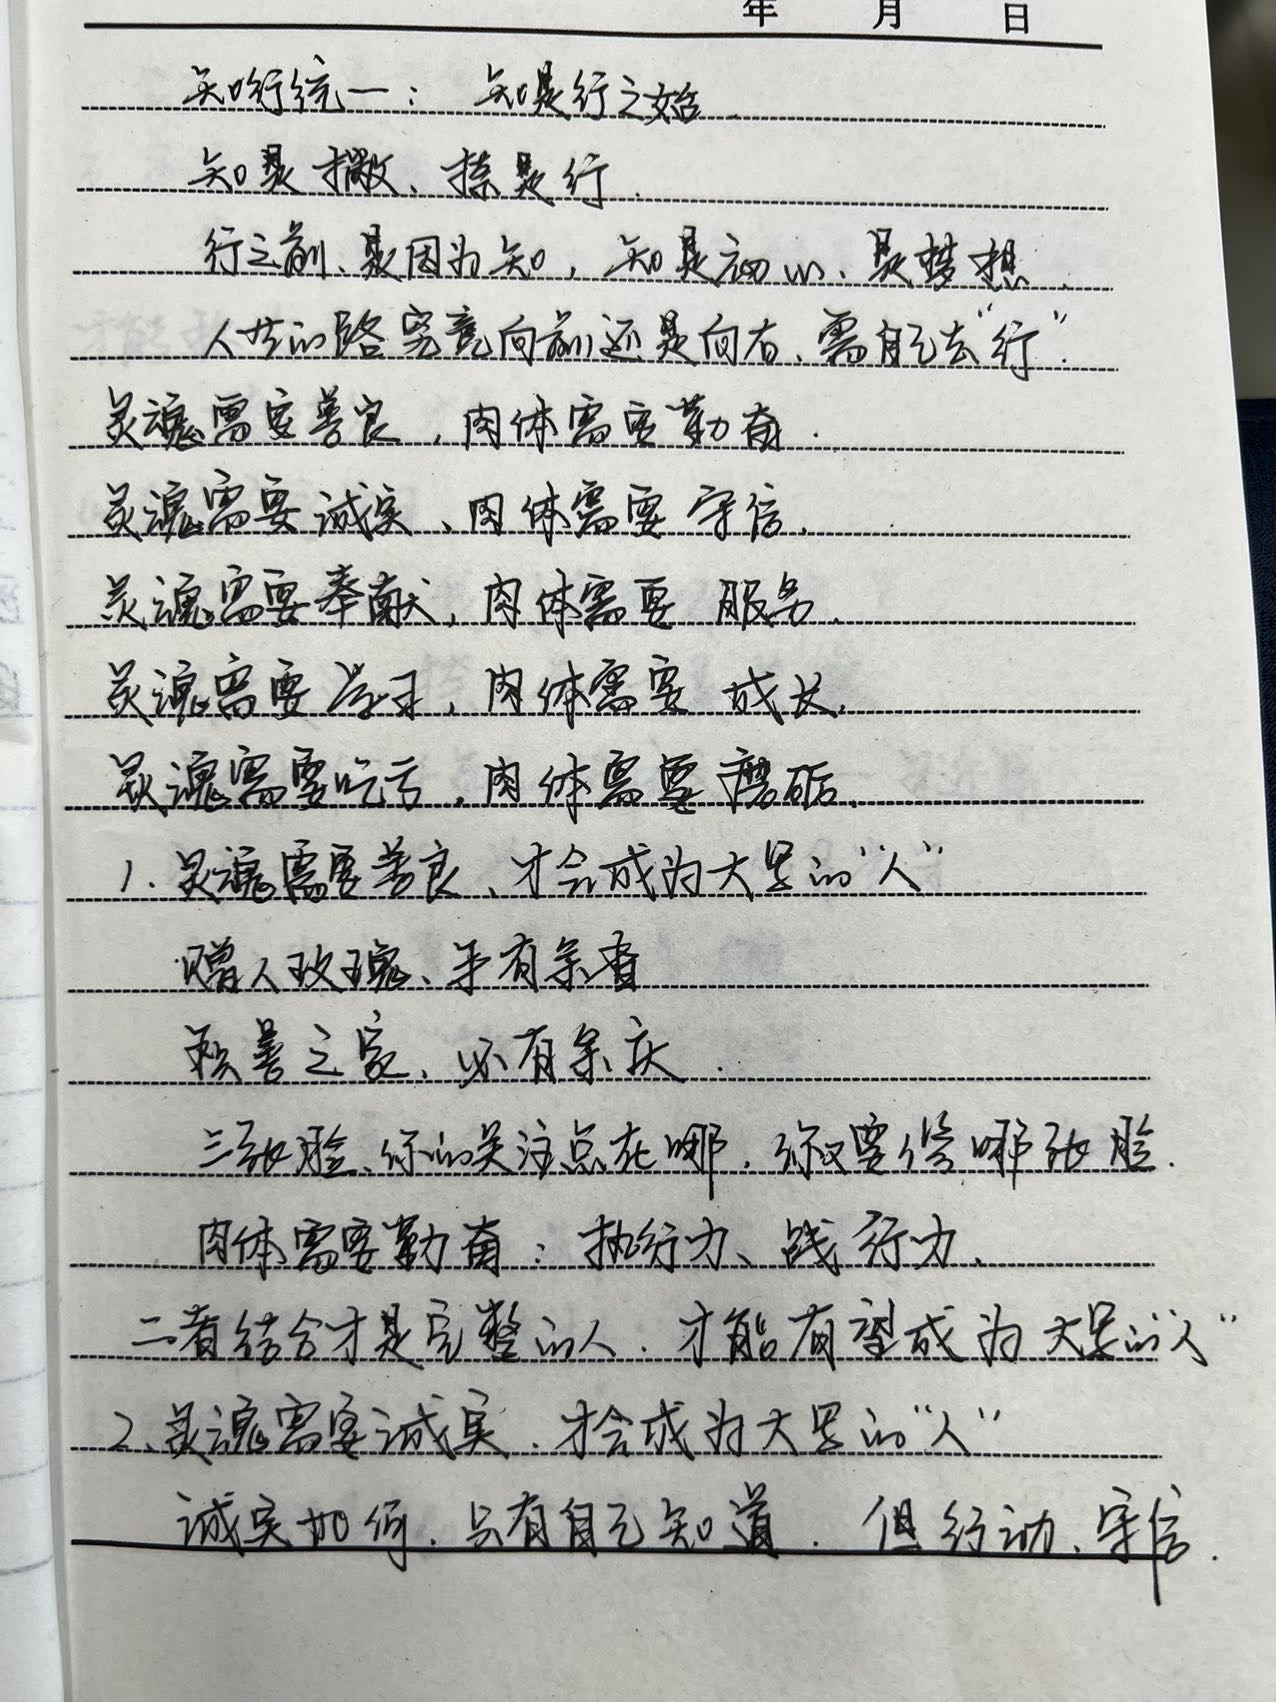 年 月 日
知行统一：知是行之始
知是撒、揉是行.
行之前、是因为知，知是初心、是梦想.
人生的路究竟向前还是向右、需自己去"行".
灵魂需要善良，肉体需要勤奋.
灵魂需要诚实、肉体需要守信.
灵魂需要奉献，肉体需要服务.
灵魂需要学习，肉体需要成长.
灵魂需要吃亏，肉体需要磨砺.
1.灵魂需要善良、才会成为大写的"人"
赠人玫瑰、手有余香
积善之家、必有余庆.
三张脸、你的关注点在哪，你又要偿哪张脸.
肉体需要勤奋：执行力、践行力、
二者结合才是完整的人.才能有望成为大写的"人"
2、灵魂需要诚实.才会成为大写的"人"
诚实如何.只有自己知道.但行动、守信.